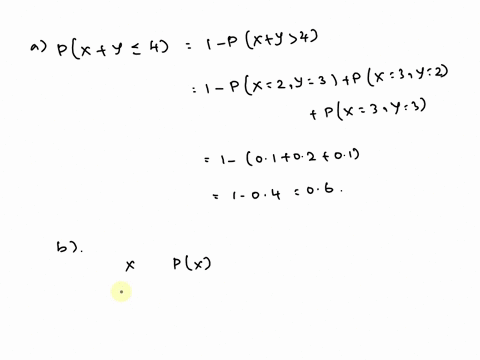 a) P(X+Y ≤ 4) = 1-P(X+Y>4)
= 1-P(X=2,Y=3)+P(X=3,Y=2)
+P(X=3,Y=3)
= 1-(0.1+0.2+0.1)
= 1-0.4=0.6.
b).
x P(x)